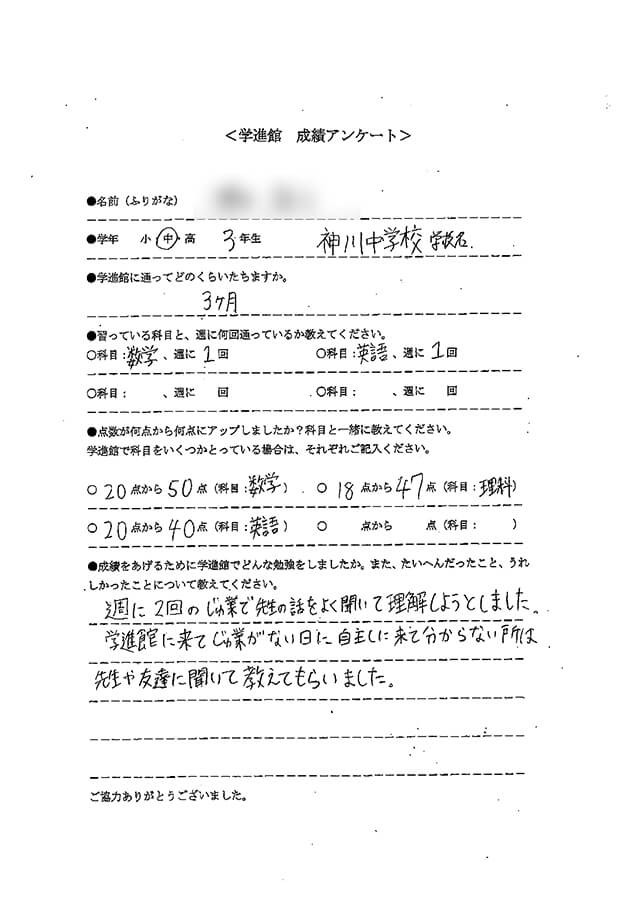 ＜学進館　成績アンケート＞
●名前（ふりがな）
●学年　小・中・高　3年生　神川中学校 学校名
●学進館に通ってどのくらいたちますか。
3ヶ月
●習っている科目と、週に何回通っているか教えてください。
○科目：数学、週に1回　○科目：英語、週に1回
○科目：　、週に　回　○科目：　、週に　回
●点数が何点から何点にアップしましたか？科目と一緒に教えてください。
学進館で科目をいくつかとっている場合は、それぞれご記入ください。
○20点から50点（科目：数学）　○18点から47点（科目：理科）
○20点から40点（科目：英語）　○　点から　点（科目：　）
●成績をあげるために学進館でどんな勉強をしましたか。また、たいへんだったこと、うれ
しかったことについて教えてください。
週に2回のじゅ業で先生の話をよく聞いて理解しようとしました。
学進館に来てじゅ業がない日に自主しに来て分からない所は
先生や友達に聞いて教えてもらいました。
ご協力ありがとうございました。